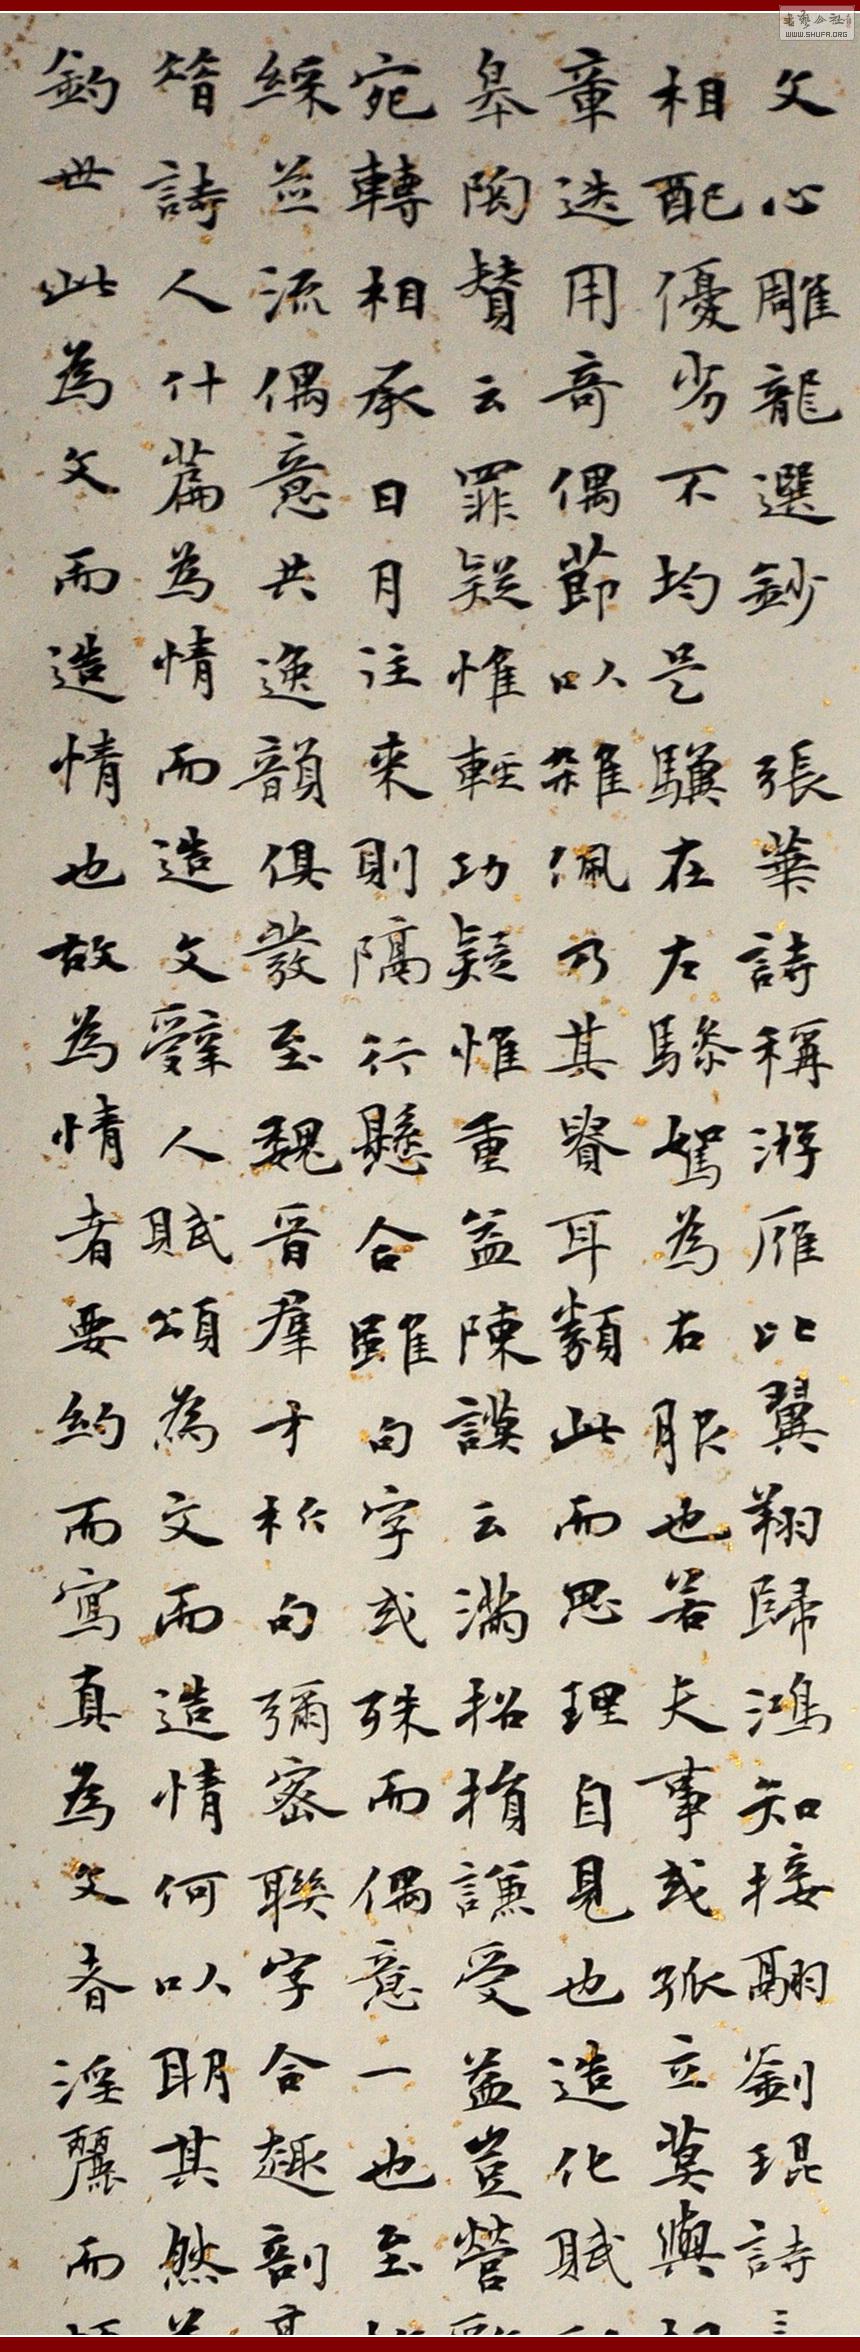 文心雕龍選鈔 張華詩稱游雁比翼翔歸鴻知接翮劉琨詩
相配優劣不均是驥在左驂駑為右服也若夫事或孤立莫與
章迭用奇偶節以雜佩乃其貴耳類此而思理自見也造化賦
皋陶贊云罪疑惟輕功疑惟重益陳謨云滿招損謙受益豈營
宛轉相承日月往來則隔行懸合雖句字或殊而偶意一也至
綵並流偶意共逸韻俱發至魏晉羣才析句彌密聯字合趣剖
昔詩人什篇為情而造文辭人賦頌為文而造情何以明其然
釣世此為文而造情也故為情者要約而寫真為文者淫麗而
书艺公社
WWW.SHUFA.ORG